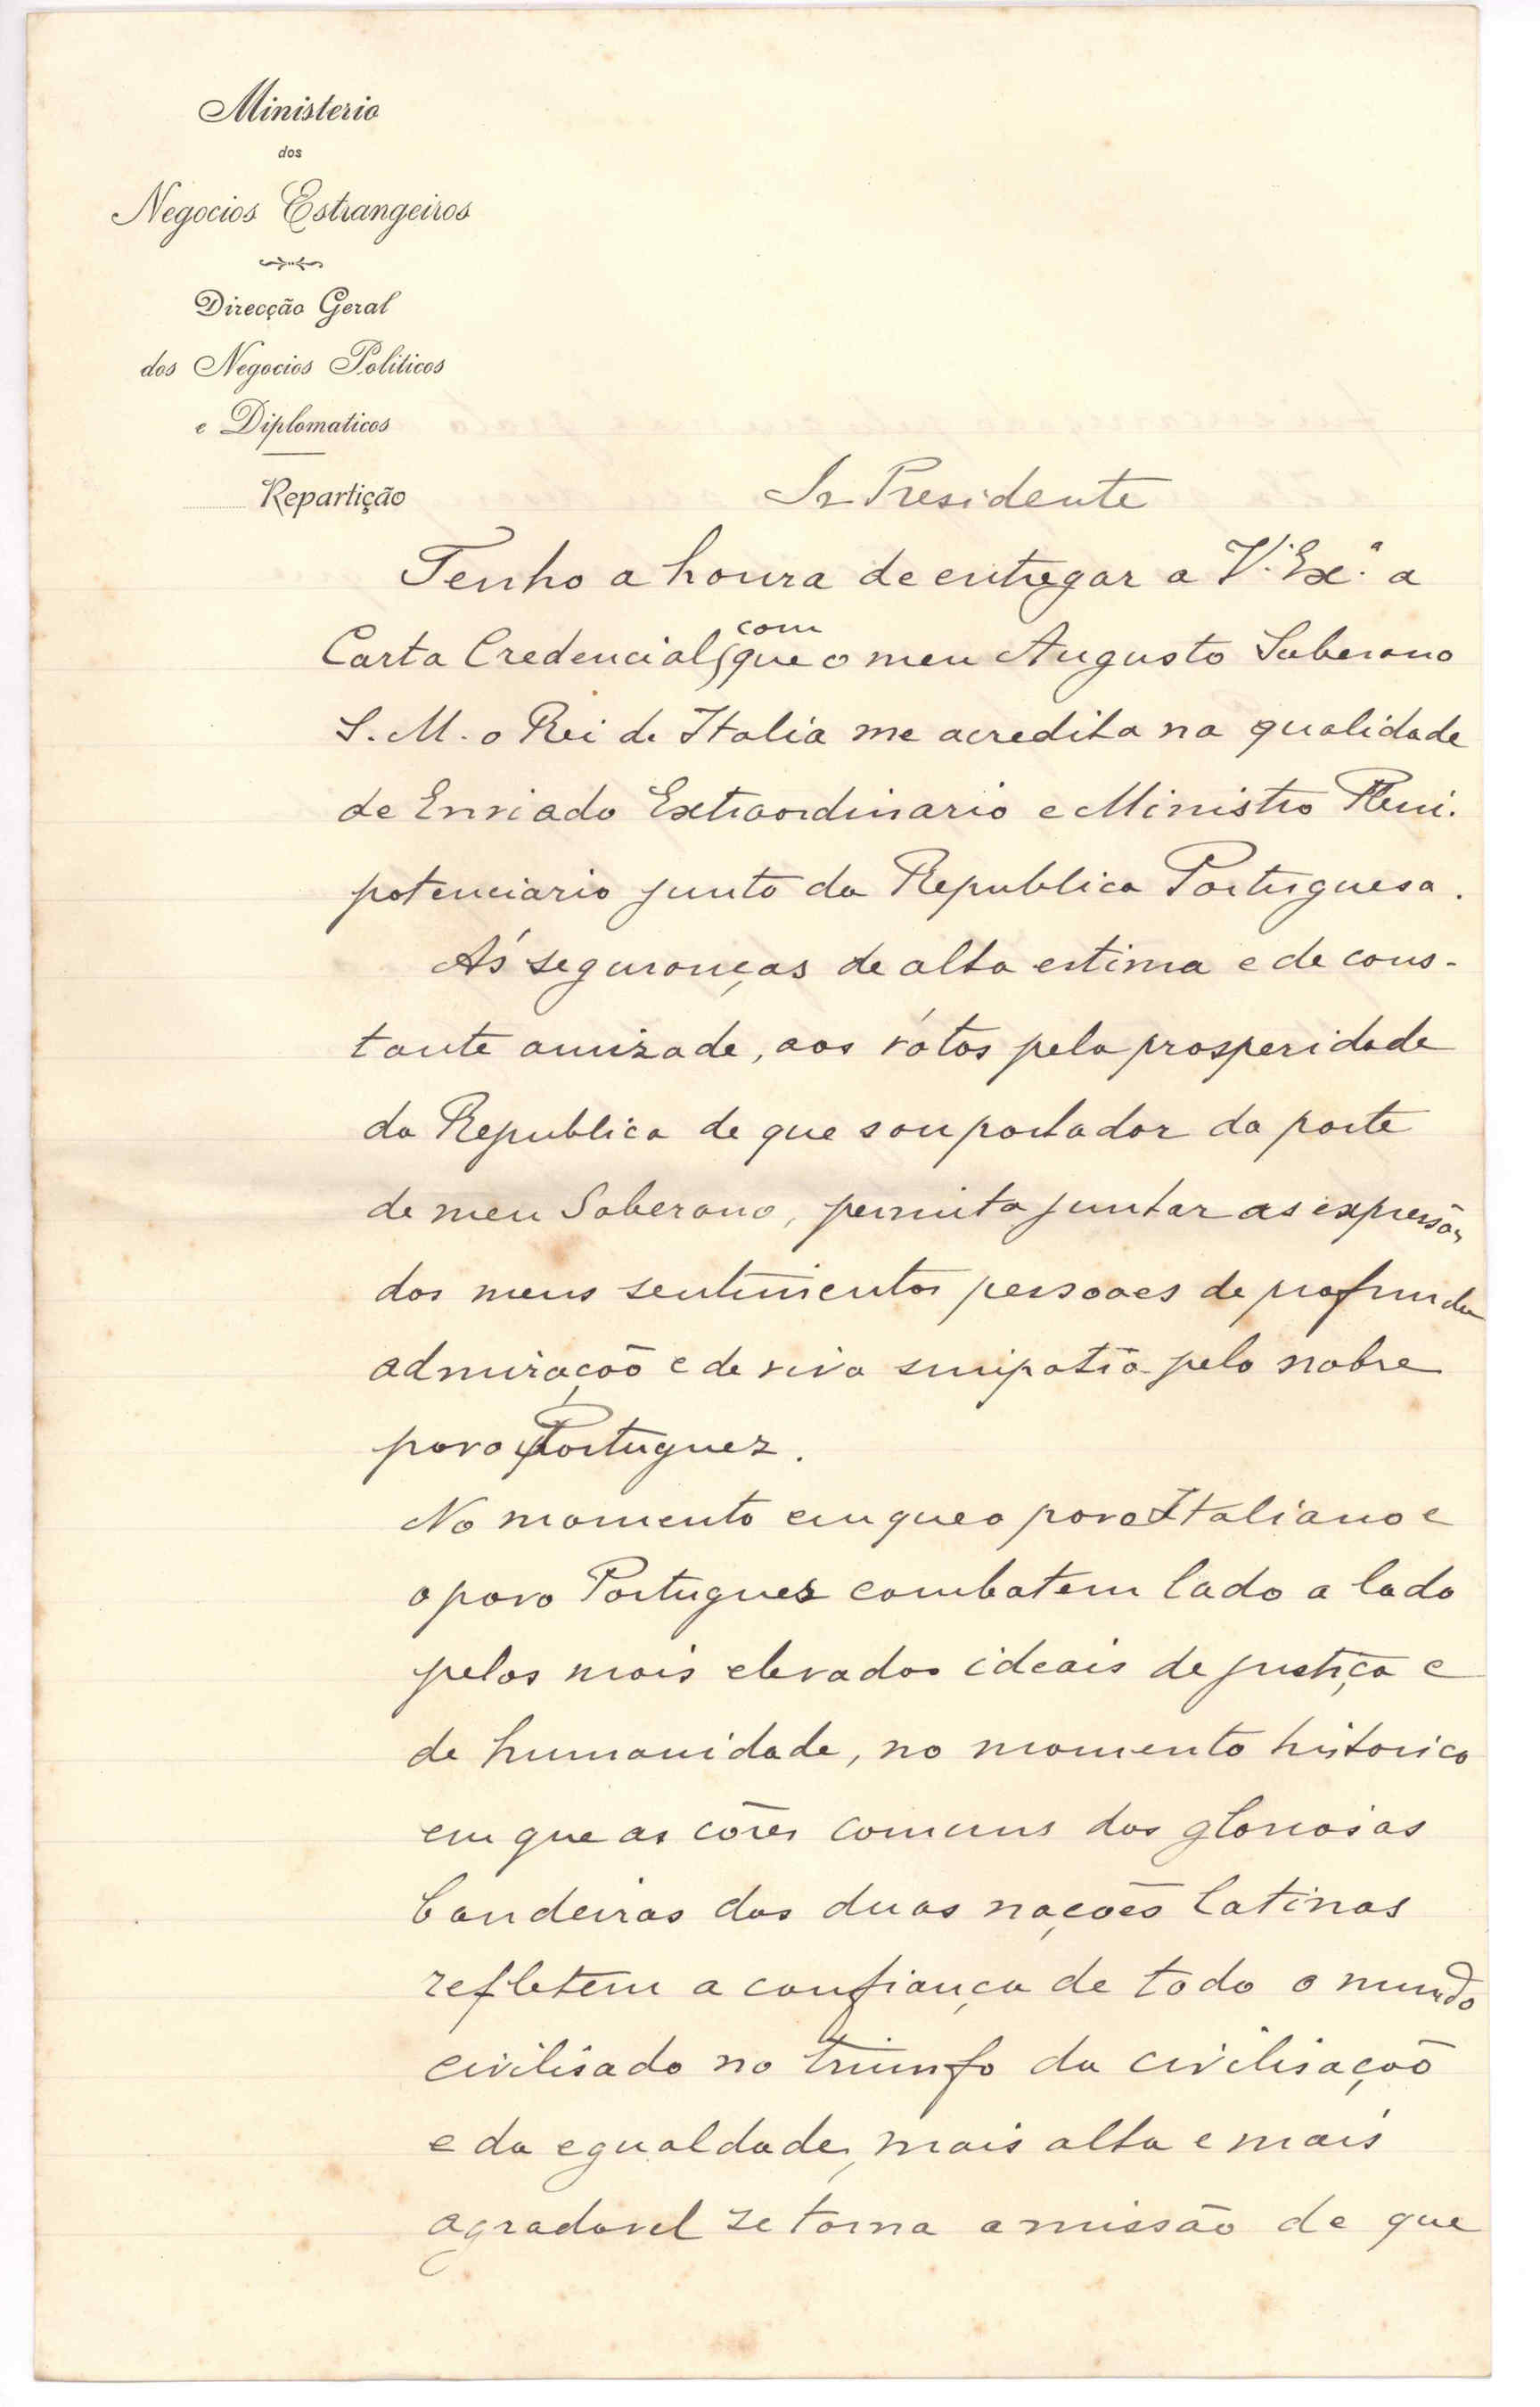 Ministerio
dos
Negocios Estrangeiros
Direcção Geral
dos Negocios Politicos
e Diplomaticos
Repartição
Sr Presidente
Tenho a honra de entregar a V. Ex.ª a
com
Carta Credencial que o meu Augusto Soberano
S. M. o Rei de Italia me acredita na qualidade
de Enviado Extraordinario e Ministro Pleni-
potenciario junto da Republica Portuguesa.
Ás seguranças de alta estima e de cons-
tante amizade, aos vótos pela prosperidade
da Republica de que sou portador da parte
de meu Soberano, permita juntar as expressões
dos meus sentimentos pessoaes de profunda
admiração e de viva simpatia pelo nobre
povo Portuguez.
No momento em que o povo Italiano e
o povo Portuguez combatem lado a lado
pelos mais elevados ideais de justiça e
de humanidade, no momento historico
em que as côres comuns das gloriosas
bandeiras das duas nações latinas
refletem a confiança de todo o mundo
civilisado no triunfo da civilisação
e da egualdade, mais alta e mais
agradavel se torna a missão de que